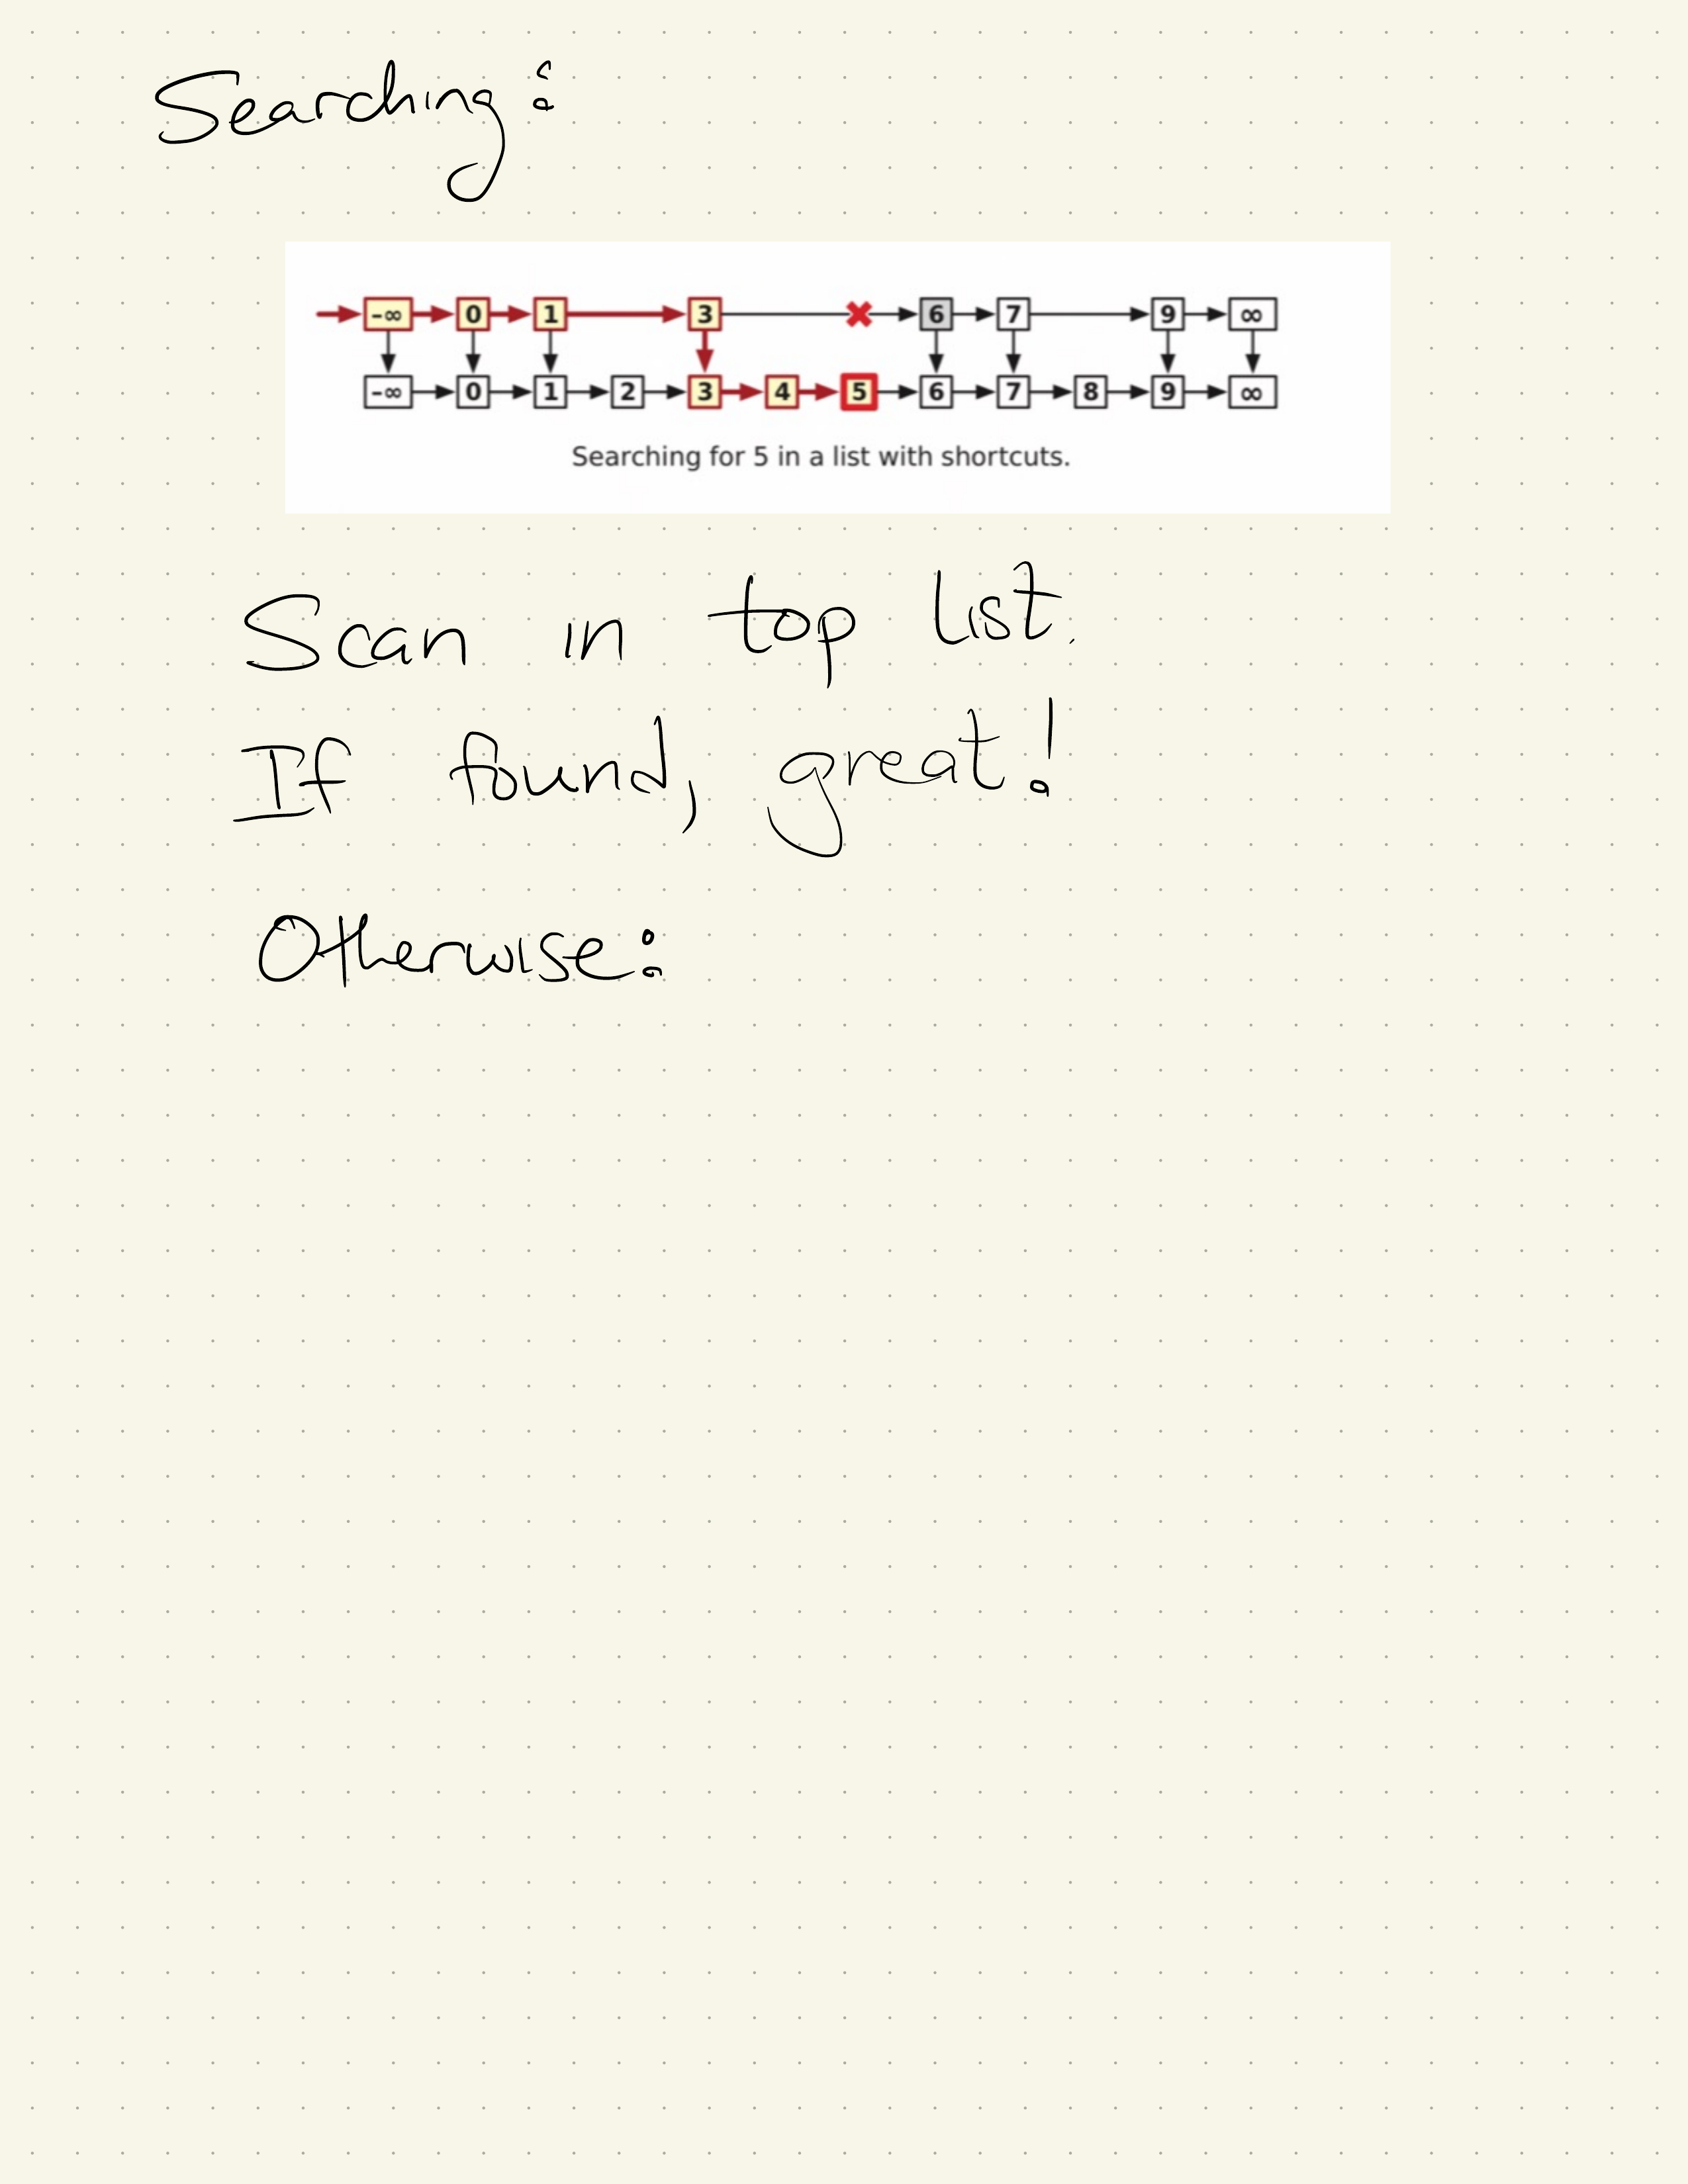 Searching:
-∞ 0 1 3 6 7 9 ∞
-∞ 0 1 2 3 4 5 6 7 8 9 ∞
Searching for 5 in a list with shortcuts.
Scan in top list.
If found, great!
Otherwise: